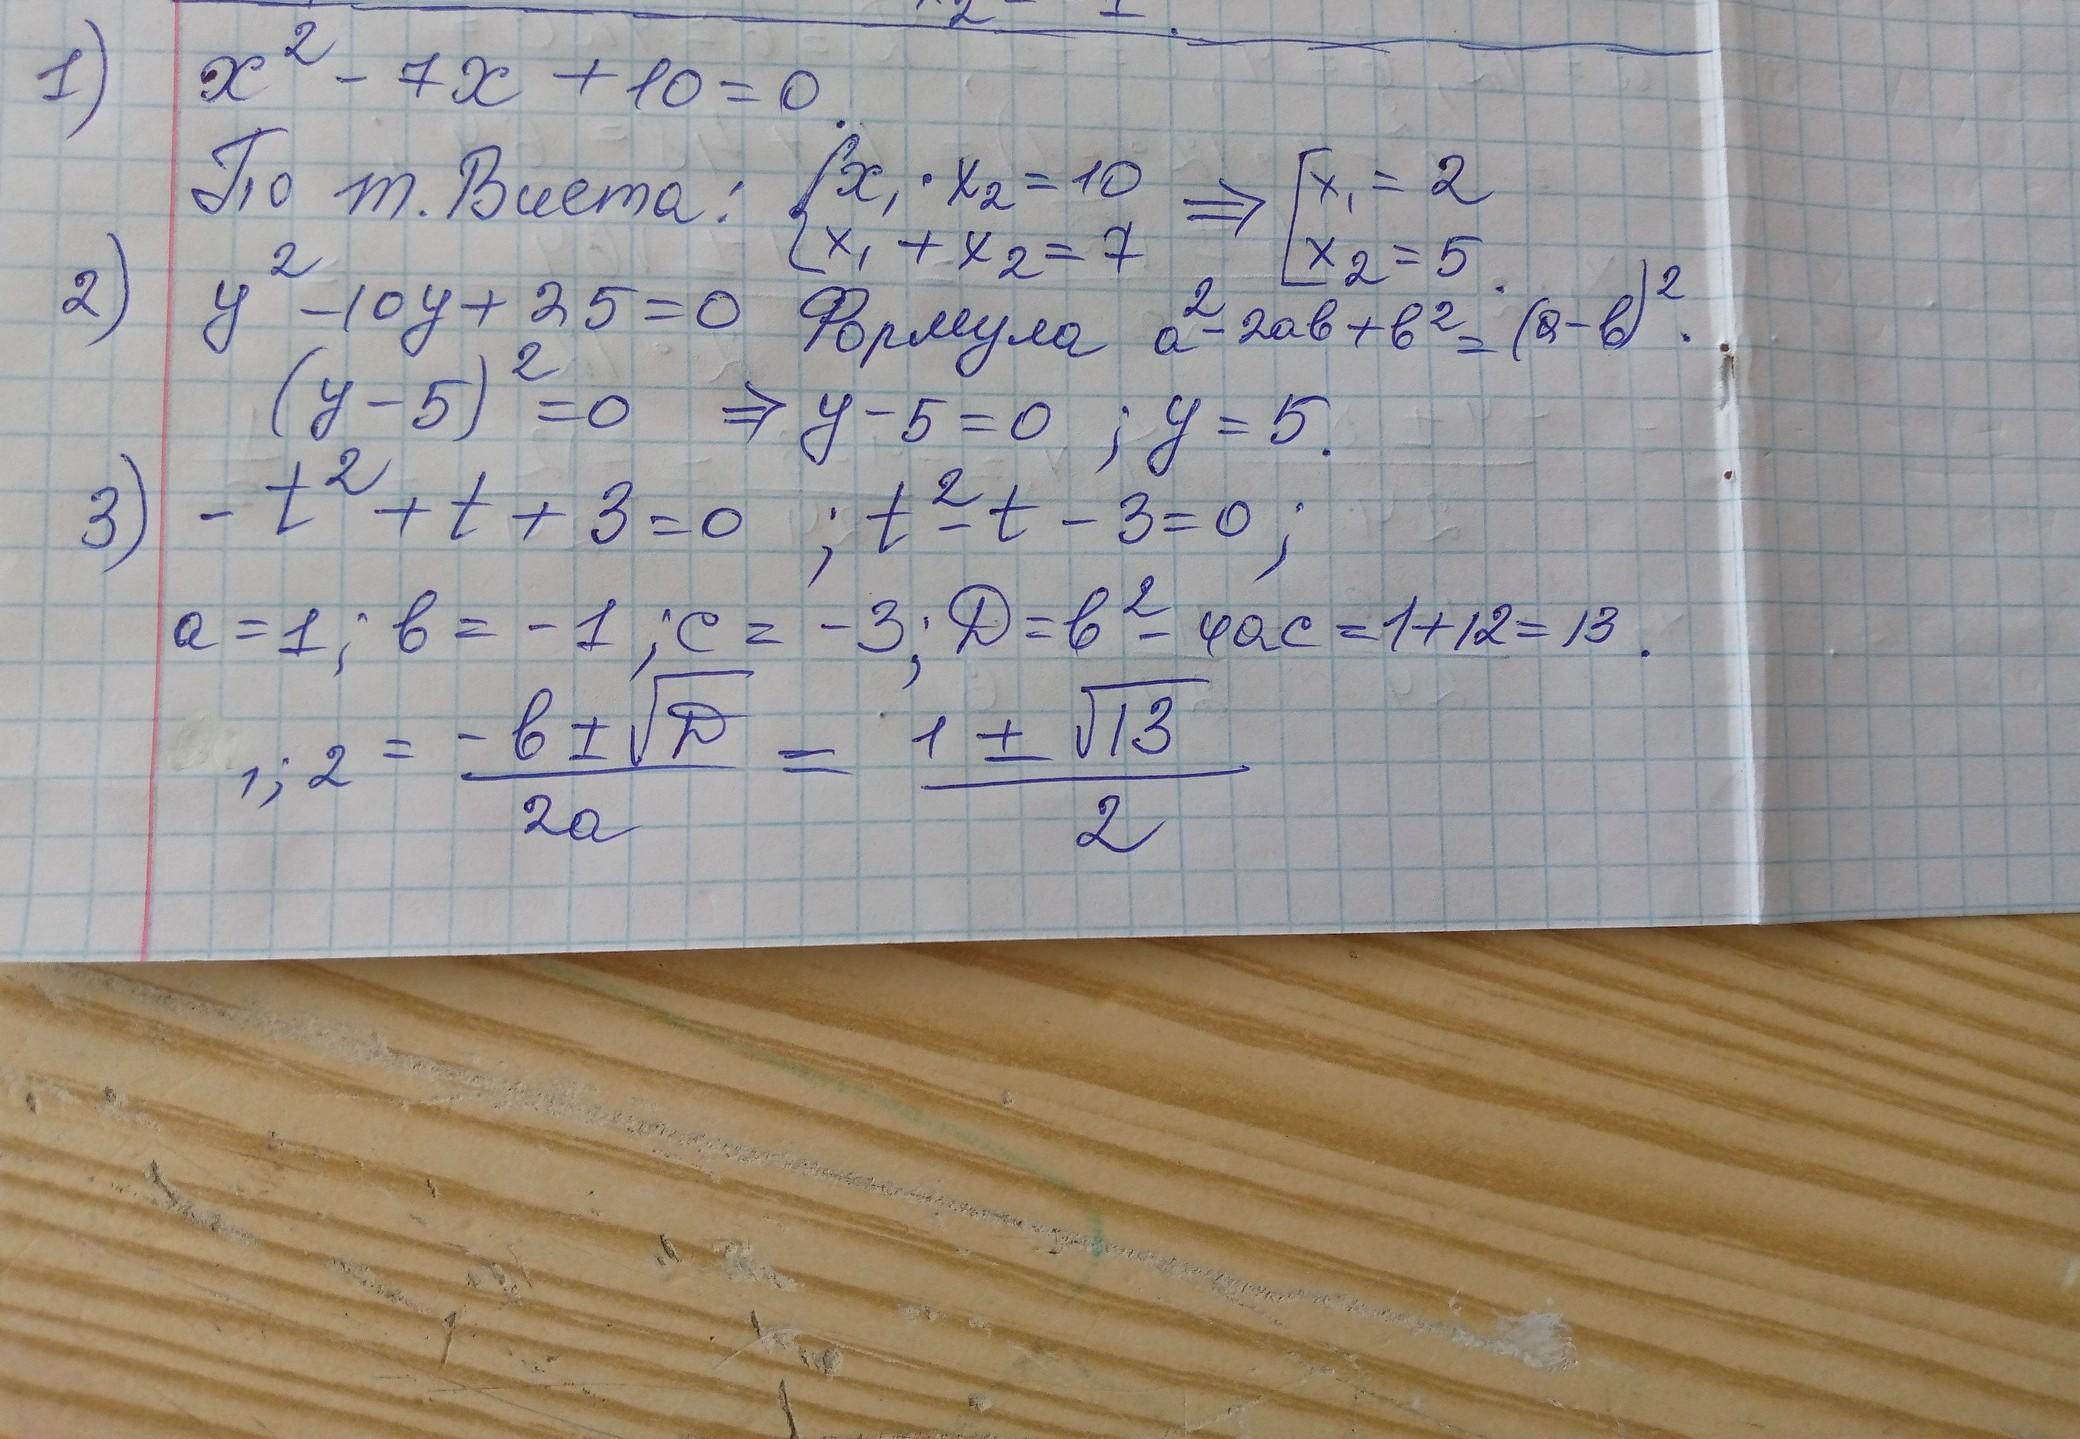 1) x² - 7x + 10 = 0.
По т. Виета: { x₁ · x₂ = 10 ⇒ [ x₁ = 2
x₁ + x₂ = 7 x₂ = 5.
2) y² - 10y + 25 = 0 Формула a² - 2ab + b² = (a - b)².
(y - 5)² = 0 ⇒ y - 5 = 0 ; y = 5.
3) - t² + t + 3 = 0 ; t² - t - 3 = 0 ;
a = 1 ; b = - 1 ; c = - 3 ; D = b² - 4ac = 1 + 12 = 13.
₁;₂ = (-b ± √D) / 2a = (1 ± √13) / 2